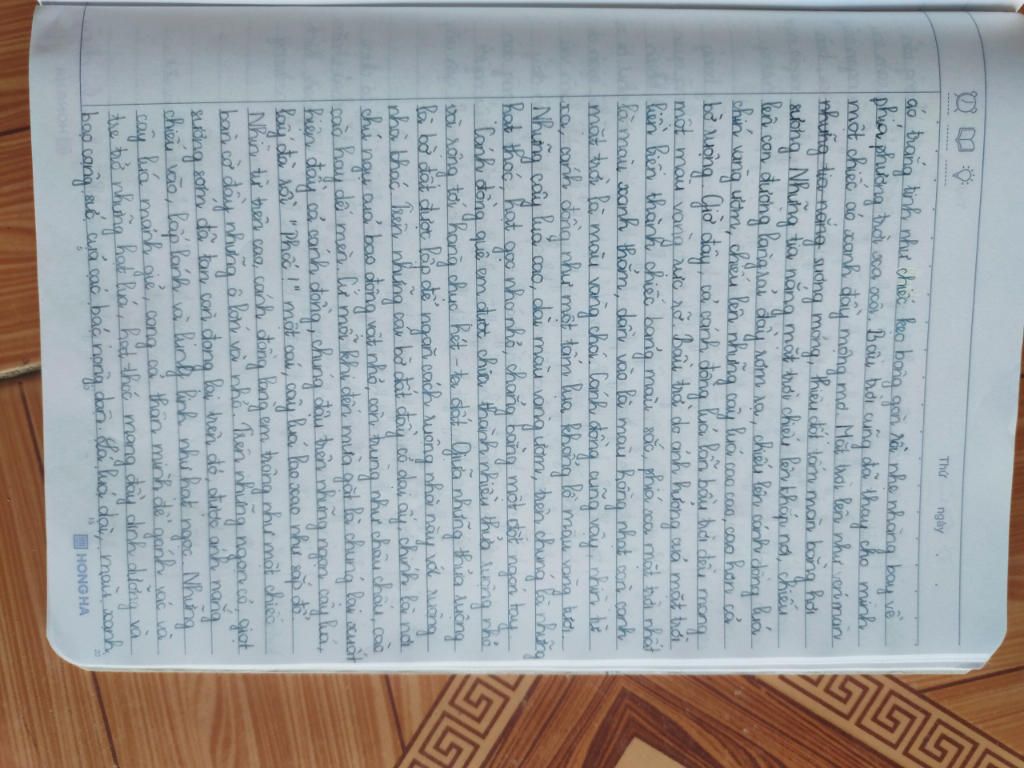 Thứ ngày
áo trắng tinh như chiếc kẹo bông gòn rồi nhẹ nhàng bay về
phía phương trời xa xôi. Bầu trời cũng đã thay cho mình
một chiếc áo xanh đầy mộng mơ. Mặt trời lên như xóa tan
những tia nắng sương mỏng, thiêu đốt tấm màn bằng hơi
sương. Những tia nắng mặt trời chiếu lên khắp nơi, chiếu
lên con đường làng rải đầy rơm rạ, chiếu lên cánh đồng lúa
chín vàng ươm, chiếu lên những cây lúa cao cao, cao hơn cả
bờ ruộng. Giờ đây, cả cánh đồng lúa lẫn bầu trời đều mang
một màu vàng rực rỡ. Bầu trời do ảnh hưởng của mặt trời,
liền biến thành chiếc bảng màu sắc, phía xa mặt trời nhất
là màu xanh thẳm, dần vào là màu hồng nhạt còn cạnh
mặt trời là màu vàng chói. Cánh đồng cũng vậy, nhìn từ
xa, cánh đồng như một tấm lụa khổng lồ màu vàng tươi.
Những cây lúa cao, dài màu vàng ươm, bên chúng là những
hạt thóc, hạt gạo nho nhỏ, chẳng bằng một đốt ngón tay.
Cánh đồng quê em được chia thành nhiều thửa ruộng nhỏ
với rộng tới hàng chục héc-ta đất. Giữa những thửa ruộng
là bờ đất được lấp để ngăn cách ruộng nhà này với ruộng
nhà khác. Trên những con bờ đất đầy cỏ dại ấy chính là nơi
chú ngụ của bao động vật nhỏ, côn trùng như châu chấu, cào
cào hay dế mèn. Cứ mỗi khi đến mùa gặt là chúng lại xuất
hiện đầy cả cánh đồng, chúng đậu trên những ngọn cây lúa,
lấy đà rồi "Phốc!" một cái, cây lúa lao xao như sắp đổ.
Nhìn từ trên cao, cánh đồng làng em trông như một chiếc
bàn cờ đầy những ô lớn và nhỏ. Trên những ngọn cỏ, giọt
sương sớm đã tan còn đọng lại trên đó, được ánh nắng
chiếu vào, lấp lánh và lung linh như hạt ngọc. Những
cây lúa mảnh giẻ, cong cả thân mình để gánh vác và
che trở những hạt lúa, hạt thóc mang đầy dinh dưỡng và
bao công sức của các bác nông dân. lá lúa dài, màu xanh
HONG HA